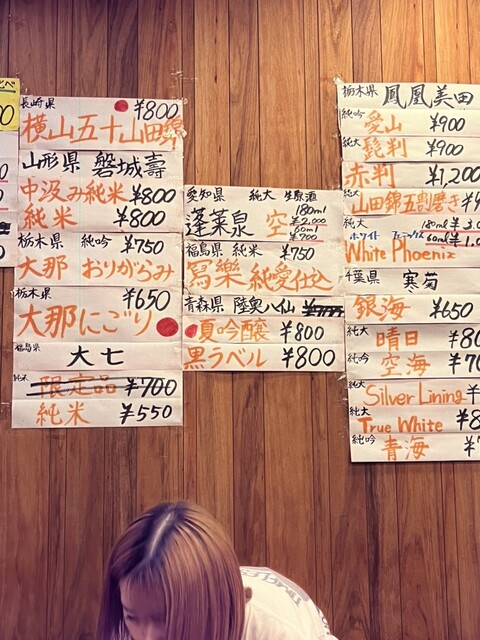 長崎県 ¥800
横山五十山田錦
山形県 磐城壽
中汲み純米 ¥800
純米 ¥800
栃木県 純吟 ¥750
大那 おりがらみ
栃木県 ¥650
大那にごり
福島県 大七
純米 限定品 ¥700
純米 ¥550
愛知県 純大 生原酒
蓬莱泉 空 180ml ¥2,000
60ml ¥700
福島県 純米 ¥750
寫樂 純愛仕込
青森県 陸奥八仙
夏吟醸 ¥800
黒ラベル ¥800
栃木県 鳳凰美田
純吟 愛山 ¥900
純大 髭判 ¥900
赤判 ¥1,200
純大 山田錦五割磨き
純大 180ml
ホワイト フェニックス 60ml
White Phoenix
千葉県 寒菊
銀海 ¥650
純大 晴日
純吟 空海
純大 Silver Lining
純大 True White
純吟 青海